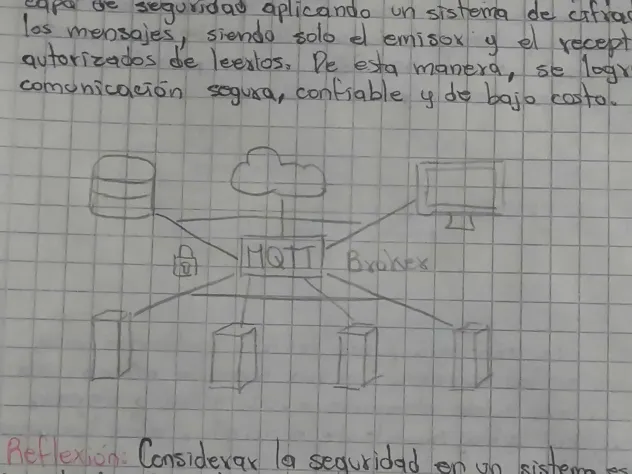 capa de seguridad aplicando un sistema de cifrad
los mensajes, siendo solo el emisor y el recept
autorizados de leerlos. De esta manera, se logr
comunicación segura, confiable y de bajo costo.
MQTT Broker
Reflexión: Considerar la seguridad en un sistema es